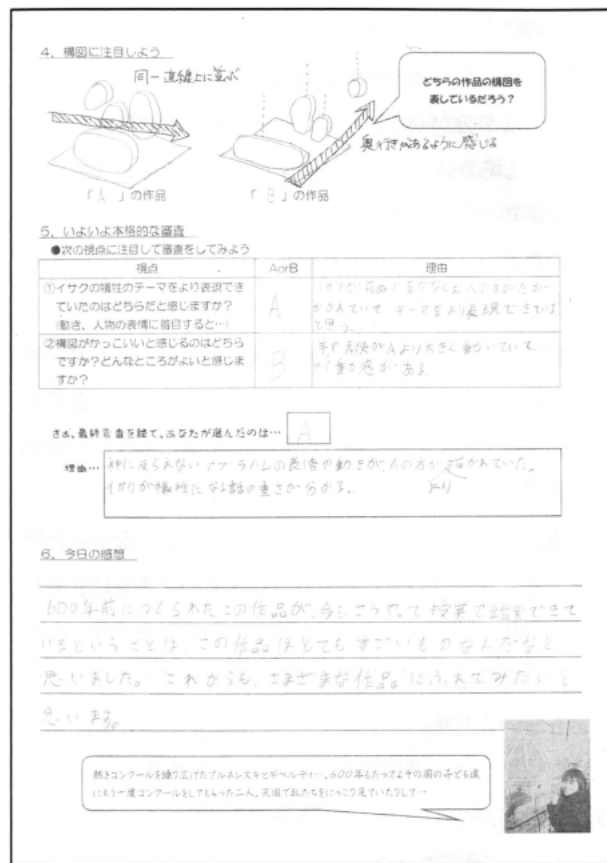 4. 構図に注目しよう
同一直線上に並ぶ
どちらの作品の構図を
表しているだろう？
奥行きがあるように感じる
「A」の作品
「B」の作品
5. いよいよ本格的な審査
●次の視点に注目して審査をしてみよう
視点 AorB 理由
①イサクの犠牲のテーマをより表現でき
ていたのはどちらだと感じますか？
(動き、人物の表情に着目すると…)
A
かかれていて、テーマをより表現できている
と思う。
②構図がかっこいいと感じるのはどちら
ですか？どんなところがよいと感じま
すか？
B
Aより大きく動いていて
動感がある。
さあ、最終審査を経て、あなたが選んだのは… A
理由… 神に逆らえないアブラハムの表情や動きが、Aの方がより描かれていた。
イサクが犠牲になる話の重さが分かる。
6. 今日の感想
600年前につくられたこの作品が、今もこうやって授業で鑑賞できて
いるということは、この作品はとてもすごいものなんだなと
思いました。これからも、さまざまな作品にふれてみたいと
思います。
熱きコンクールを繰り広げたブルネレスキとギベルティ…。600年もたってよその国の子ども達
にもう一度コンクールをしてもらった二人。天国で私たちをにっこり見ていたりして…